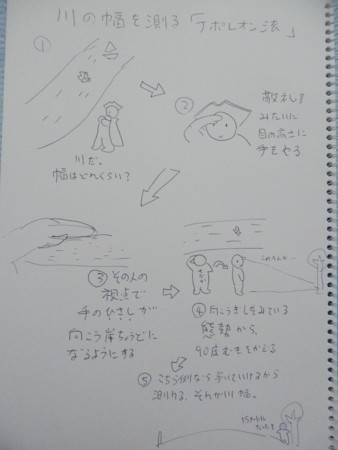 川の幅を測る「ナポレオン法」
①
川だ。
幅はどれくらい？
②
敬礼
みたいに
目の高さに
手をやる
③ その人の
視点で
手のひさしが
向こう岸ちょうどに
なるようにする
④ 向こうぎしをみている
態勢から
90度むきをかえる
このへんか…
⑤ こちら側なら歩いていけるから
測れる。それが川幅。
15メートル
だった！